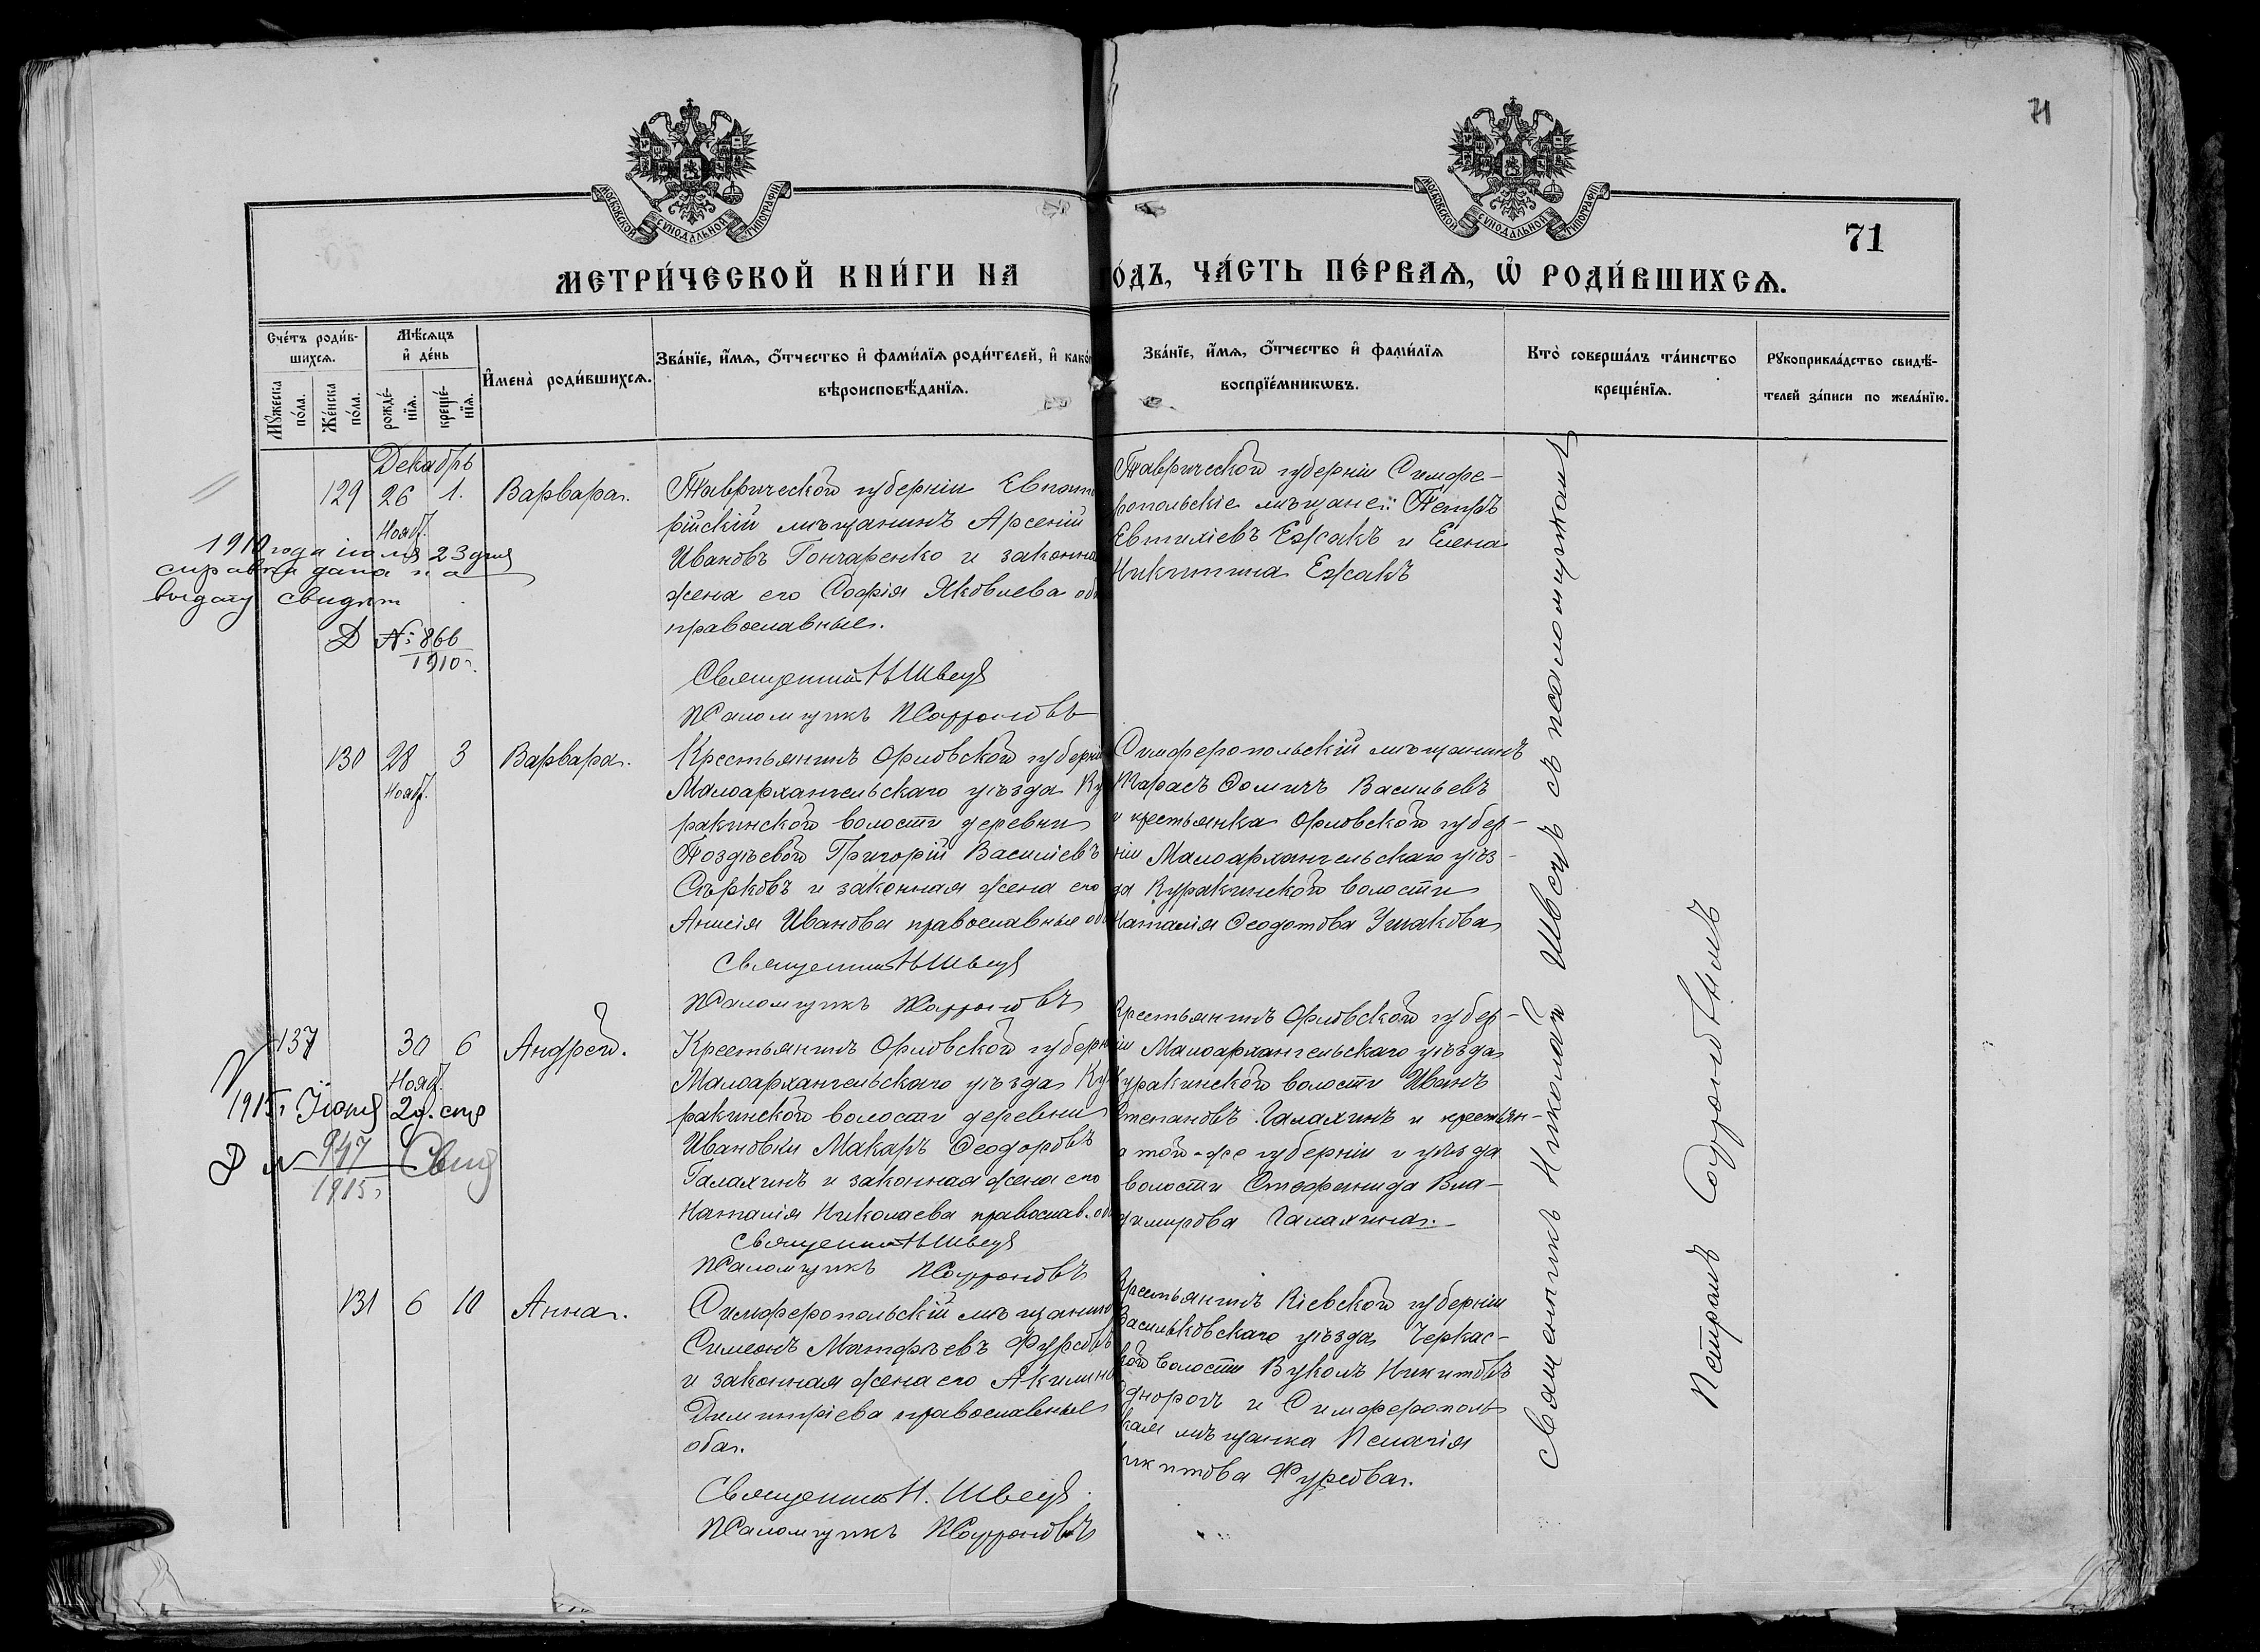 71
МОСКОВСКОЙ СѴНОДАЛЬНОЙ ТИПОГРАФІИ
МОСКОВСКОЙ СѴНОДАЛЬНОЙ ТИПОГРАФІИ
71
МЕТРИ́ЧЕСКОЙ КНИ́ГИ НА
О́ДЪ, ЧА́СТЬ ПЕ́РВАѦ, Ѽ РОДИ́ВШИХСѦ.
Сче́тъ роди́в-
шихсѧ.
Мꙋ́жеска по́ла.
Же́нска по́ла.
Мѣ́сѧцъ
и҆ де́нь
рожде́-нїѧ.
креще́-нїѧ.
И҆мена̀ роди́вшихсѧ.
Зва́нїе, и҆́мѧ, ѻ҆́тчество и҆ фами́лїѧ роди́телей, и҆ како́
вѣроисповѣ́данїѧ.
Зва́нїе, и҆́мѧ, ѻ҆́тчество и҆ фами́лїѧ
воспрїе́мникѡвъ.
Кто̀ соверша́лъ та́инство
креще́нїѧ.
Рꙋкоприкла́дство свидѣ́-
телей за́писи по жела́нїю.
Декабрь
129 26 1. Варвара.
Нояб.
Таврической губерніи Евпато
рійскій мѣщанинъ Арсеній
Ивановъ Гончаренко и законна
жена его Софія Яковлева об
православные.
Священникъ Н Швецъ
Псаломщикъ ПСофроновъ
Таврической губерніи Симфе-
ропольскіе мѣщане: Петръ
Евтихіевъ Ежакъ и Елена
Никитина Ежакъ
1910 года іюля 23 дня
справка дана на
выдачу свидѣт
Д №: 866
1910 г.
130 28 3 Варвара.
Нояб.
Крестьянинъ Орловской губерні
Малоархангельскаго уѣзда Ку
ракинской волости деревни
Поздѣевой Григорій Василіевъ
Сѣрковъ и законная жена его
Анисія Иванова православные об
Священникъ Н Швецъ
Псаломщикъ ПСофроновъ
Симферопольскій мѣщанинъ
Тарасъ Ѳомичъ Васильевъ
и крестьянка Орловской губер-
ніи Малоархангельскаго уѣз-
да Куракинской волости
Наталія Ѳеодотова Ушакова
137 30 6 Андрей.
Нояб.
Крестьянинъ Орловской губерн
Малоархангельскаго уѣзда Ку
ракинской волости деревни
Ивановки Макаръ Ѳеодоровъ
Галахинъ и законная жена его
Наталія Николаева православ. об
Священникъ Н Швецъ
Псаломщикъ ПСофроновъ
Крестьянинъ Орловской губер-
ніи Малоархангельскаго уѣзда
Куракинской волости Иванъ
Степановъ Галахинъ и крестьян-
а той-же губерніи и уѣзда
волости Стефанида Вла-
димирова Галахина.
1915 г Іюня 2 д.
Д № 947
1915 г
Свид
131 6 10 Анна.
Симферопольскій мѣщанин
Симеонъ Матфѣевъ Фурсовъ
и законная жена его Акилина
Димитріева православные
оба.
Священникъ Н. Швецъ
Псаломщикъ ПСофроновъ
Крестьянинъ Кіевской губерніи
Васильковскаго уѣзда Черкас-
кой волости Вуколъ Никитовъ
Однорогъ и Симферополь-
ская мѣщанка Пелагія
Никитова Фурсова.
Священникъ Николай Швецъ съ псаломщикомъ
Петромъ Софроновымъ